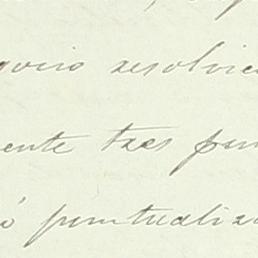 resolvic
ente tres pun
ó puntualiza